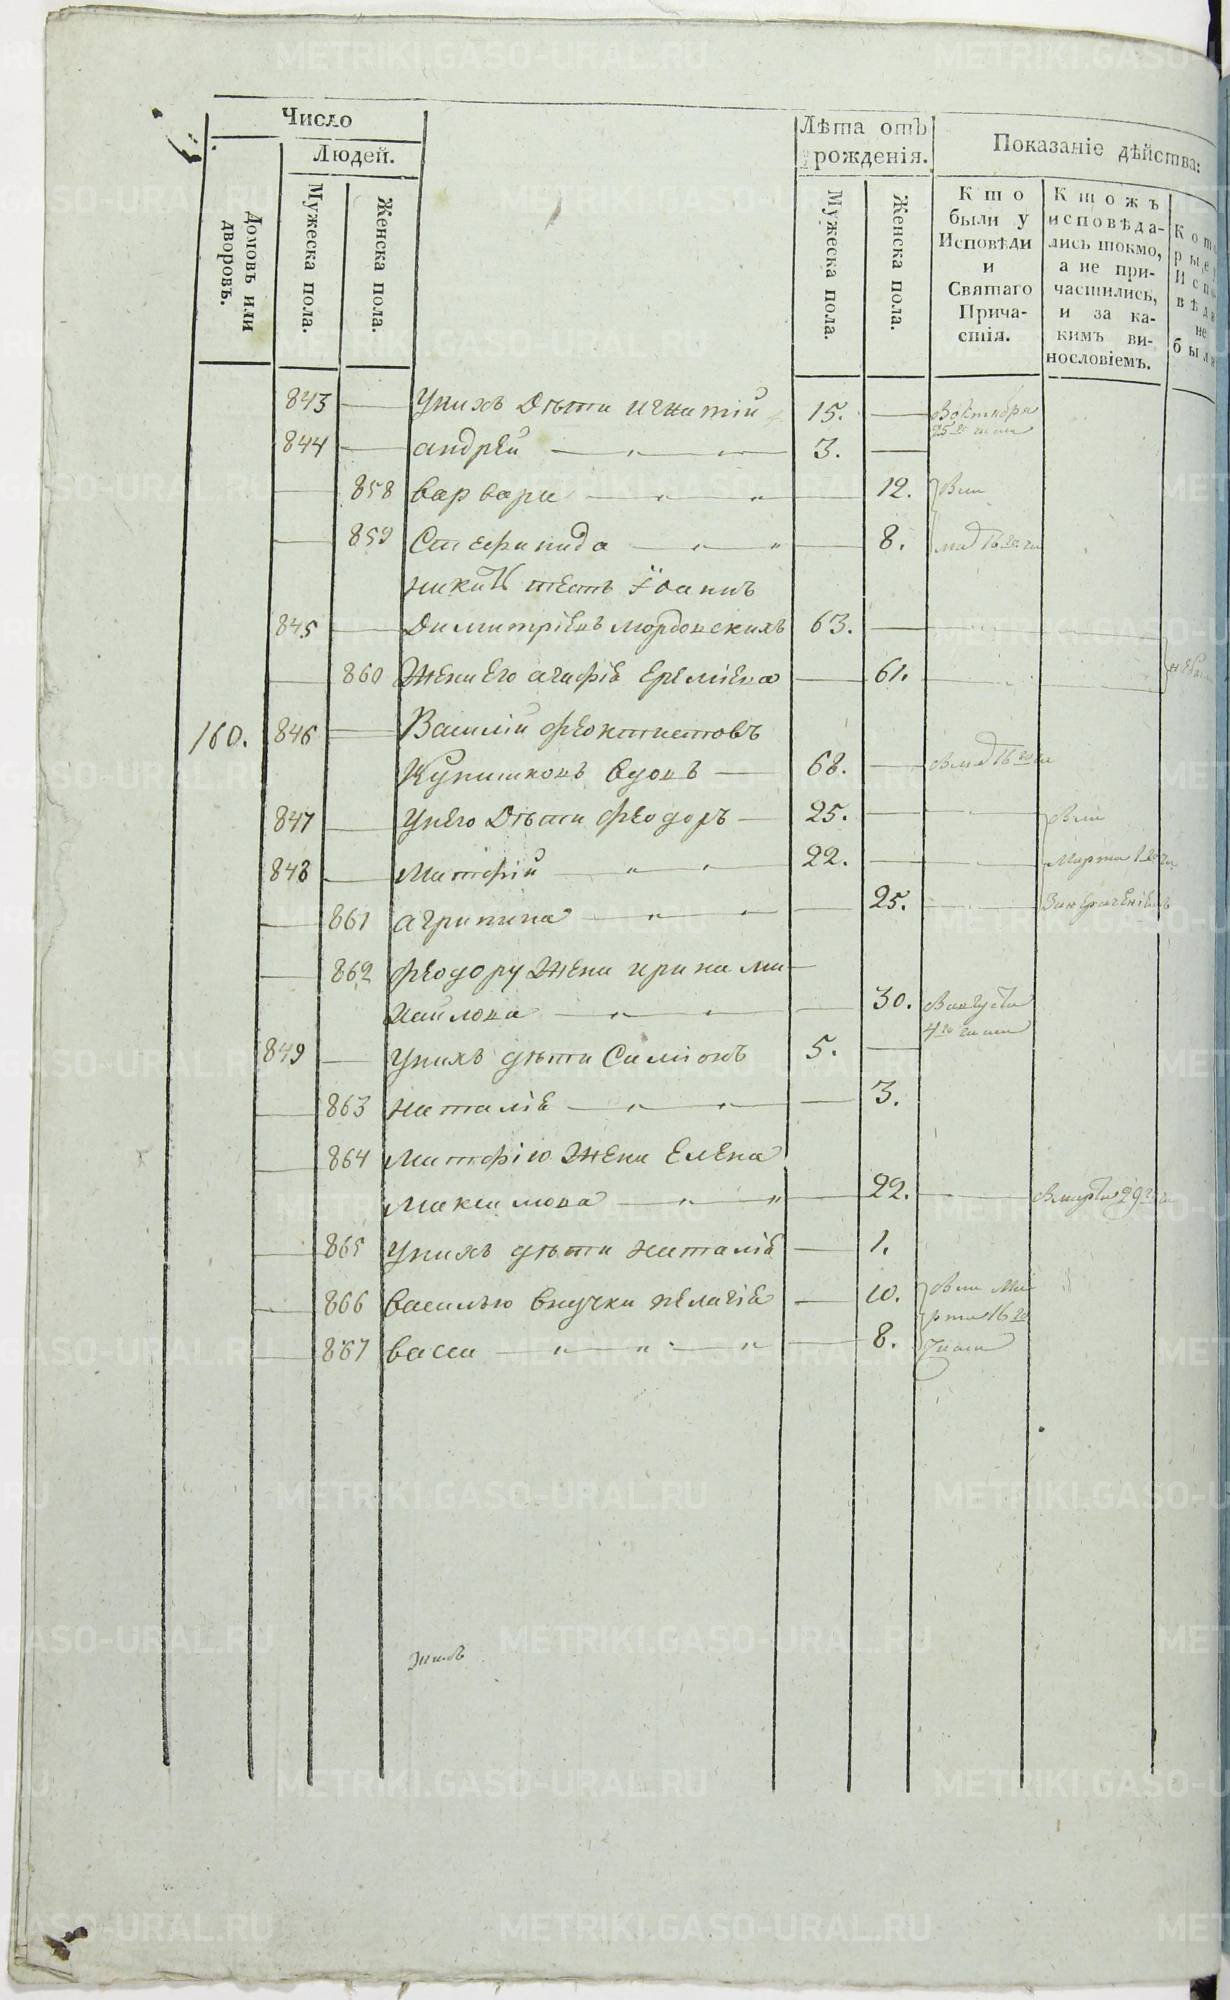 Число
Людей.
Домовъ или дворовъ.
Мужеска пола.
Женска пола.
Лѣта отъ рожденія.
Мужеска пола.
Женска пола.
Показаніе дѣйства:
Кто были у Исповѣди и Святаго Прича-стія.
Ктожъ исповѣда-лись токмо, а не при-частились, и за ка-кимъ ви-нословіемъ.
Кото-рые Испо-вѣди не были
843 — Унихъ Дѣти игнатій 15. — Воктября
25 го числа
844 — андрей — „ — „ — 3. —
— 858 варвара — „ — „ — 12. Вма
— 859 Стефанида — „ — „ — 8. 16
никиты тесть Іоаннъ
845 — Димитріевъ мордовскихъ 63. —
— 860 Жена Его агафіѣ Еремѣева — 61.
160. 846 — Василій феоктистовъ
Купишковъ вдовъ — 68. — 16
847 — Унего Дѣти феодоръ — 25. —
848 — Матфій — „ — „ — 22. — Марта 1
— 861 агрипина — „ — „ — 25.
— 862 феодору Жена ирина ми-
хайлова — „ — „ — 30. Вавгуста
4 го числа
849 — Унихъ дѣти Симіонъ 5. —
— 863 наталіѣ — „ — „ — 3.
— 864 Матфію Жена Елена
Максимова — „ — „ — 22. — Вмарта 29
— 865 Унихъ дѣти наталіѣ — 1.
— 866 василью внучки пелагіѣ — 10. Ма
рта 16 го
— 867 васса — „ — „ — „ — 8. числа
METRIKI.GASO-URAL.RU